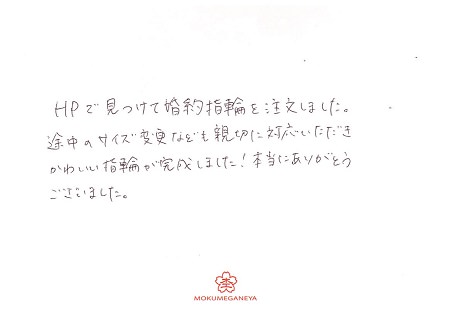 HPで見つけて婚約指輪を注文しました。
途中のサイズ変更なども親切に対応いただき
かわいい指輪が完成しました!本当にありがとう
ございました。
MOKUMEGANEYA